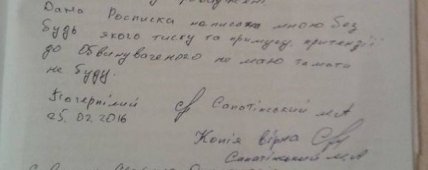 Дана Росписка написана мною без
будь якого тиску та примусу, притензії
до обвинуваченого не маю та мати
не буду.
Потерпілий Сапатінський М.А
25.02.2016
Копія вірна
Сапатінський М.А